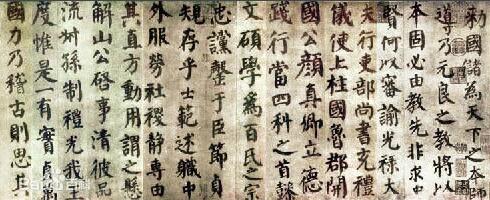 敕國儲為天下之本師
導乃元良之教將以
本固必由教先非求忠
賢何以審諭光祿大
夫行吏部尚書充禮
儀使上柱國魯郡開
國公顏真卿立德
踐行當四科之首懿
文碩學為百氏之宗
忠讜罄于臣節貞
規存乎士範述職中
外服勞社稷靜專由
其直方動用謂之懸
解山公啓事清彼品
流叔孫制禮光我王
度惟是一有實貞萬
國力乃稽古則思其